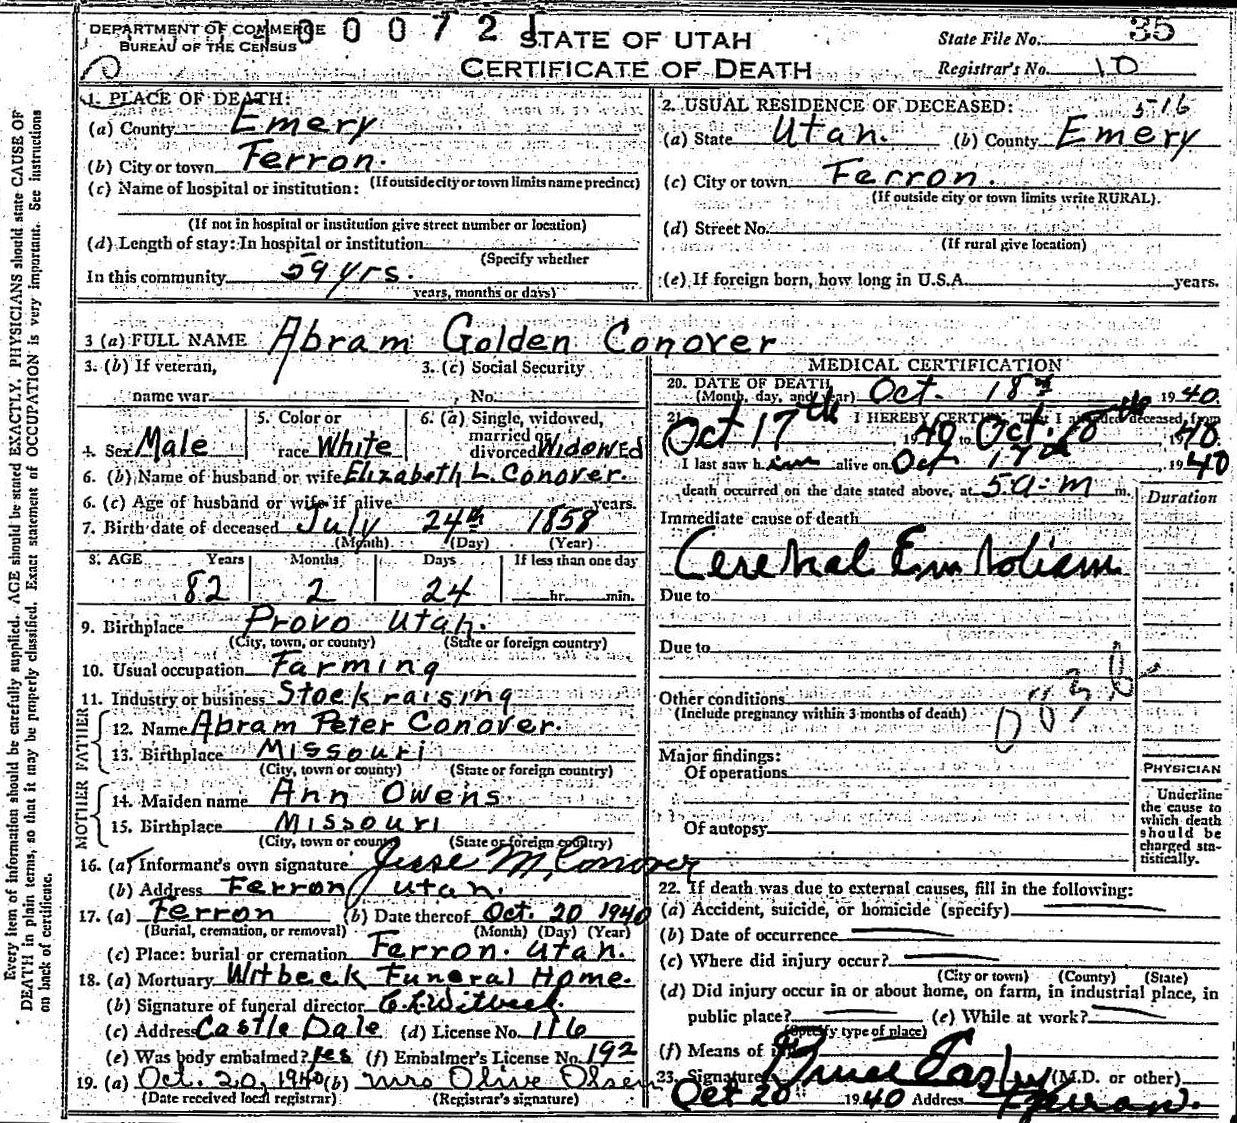 DEPARTMENT OF COMMERCE
BUREAU OF THE CENSUS
0 0 7 2
STATE OF UTAH
CERTIFICATE OF DEATH
State File No. 35
Registrar's No. 10
Every item of information should be carefully supplied. AGE should be stated EXACTLY. PHYSICIANS should state CAUSE OF
DEATH in plain terms, so that it may be properly classified. Exact statement of OCCUPATION is very important. See instructions
on back of certificate.
1. PLACE OF DEATH:
(a) County Emery
(b) City or town Ferron.
(If outside city or town limits name precinct)
(c) Name of hospital or institution:
(If not in hospital or institution give street number or location)
(d) Length of stay: In hospital or institution
(Specify whether
In this community 59 yrs.
years, months or days)
2. USUAL RESIDENCE OF DECEASED:
516
(a) State Utah. (b) County Emery
(c) City or town Ferron.
(If outside city or town limits write RURAL).
(d) Street No.
(If rural give location)
(e) If foreign born, how long in U.S.A. years.
3 (a) FULL NAME Abram Golden Conover
3. (b) If veteran,
name war
3. (c) Social Security
No.
4. Sex Male
5. Color or
race White
6. (a) Single, widowed,
married or
divorced Widowed
6. (b) Name of husband or wife Elizabeth L. Conover.
6. (c) Age of husband or wife if alive years.
7. Birth date of deceased July 24th 1858
(Month) (Day) (Year)
8. AGE Years Months Days If less than one day
82 2 24 hr. min.
9. Birthplace Provo Utah.
(City, town, or county) (State or foreign country)
10. Usual occupation Farming
11. Industry or business Stock raising
FATHER
12. Name Abram Peter Conover.
13. Birthplace Missouri
(City, town or county) (State or foreign country)
MOTHER
14. Maiden name Ann Owens.
15. Birthplace Missouri
(City, town or county) (State or foreign country)
16. (a) Informant's own signature Jesse M. Conover
(b) Address Ferron Utah.
17. (a) Ferron (b) Date thereof Oct. 20 1940
(Burial, cremation, or removal) (Month) (Day) (Year)
(c) Place: burial or cremation Ferron. Utah.
18. (a) Mortuary Witbeck Funeral Home.
(b) Signature of funeral director Witbeck.
(c) Address Castle Dale (d) License No. 116
(e) Was body embalmed? yes (f) Embalmer's License No. 192
19. (a) Oct. 20, 1940 (b) Mrs Olive Olsen
(Date received local registrar) (Registrar's signature)
MEDICAL CERTIFICATION
20. DATE OF DEATH
(Month, day, and year) Oct. 18th 1940.
21. I HEREBY CERTIFY, That I attended deceased from
Oct 17th 1940 to Oct. 1940.
I last saw him alive on Oct 17th, 1940
death occurred on the date stated above, at 5 a.m m.
Duration
Immediate cause of death
Cerebral Embolism
Due to
Due to
Other conditions
(Include pregnancy within 3 months of death)
Major findings:
Of operations
Of autopsy
PHYSICIAN
Underline
the cause to
which death
should be
charged sta-
tistically.
22. If death was due to external causes, fill in the following:
(a) Accident, suicide, or homicide (specify)
(b) Date of occurrence
(c) Where did injury occur?
(City or town) (County) (State)
(d) Did injury occur in or about home, on farm, in industrial place, in
public place? (e) While at work?
(Specify type of place)
(f) Means of
23. Signature Bruce Easley (M.D. or other)
Oct 20 1940 Address Ferron.